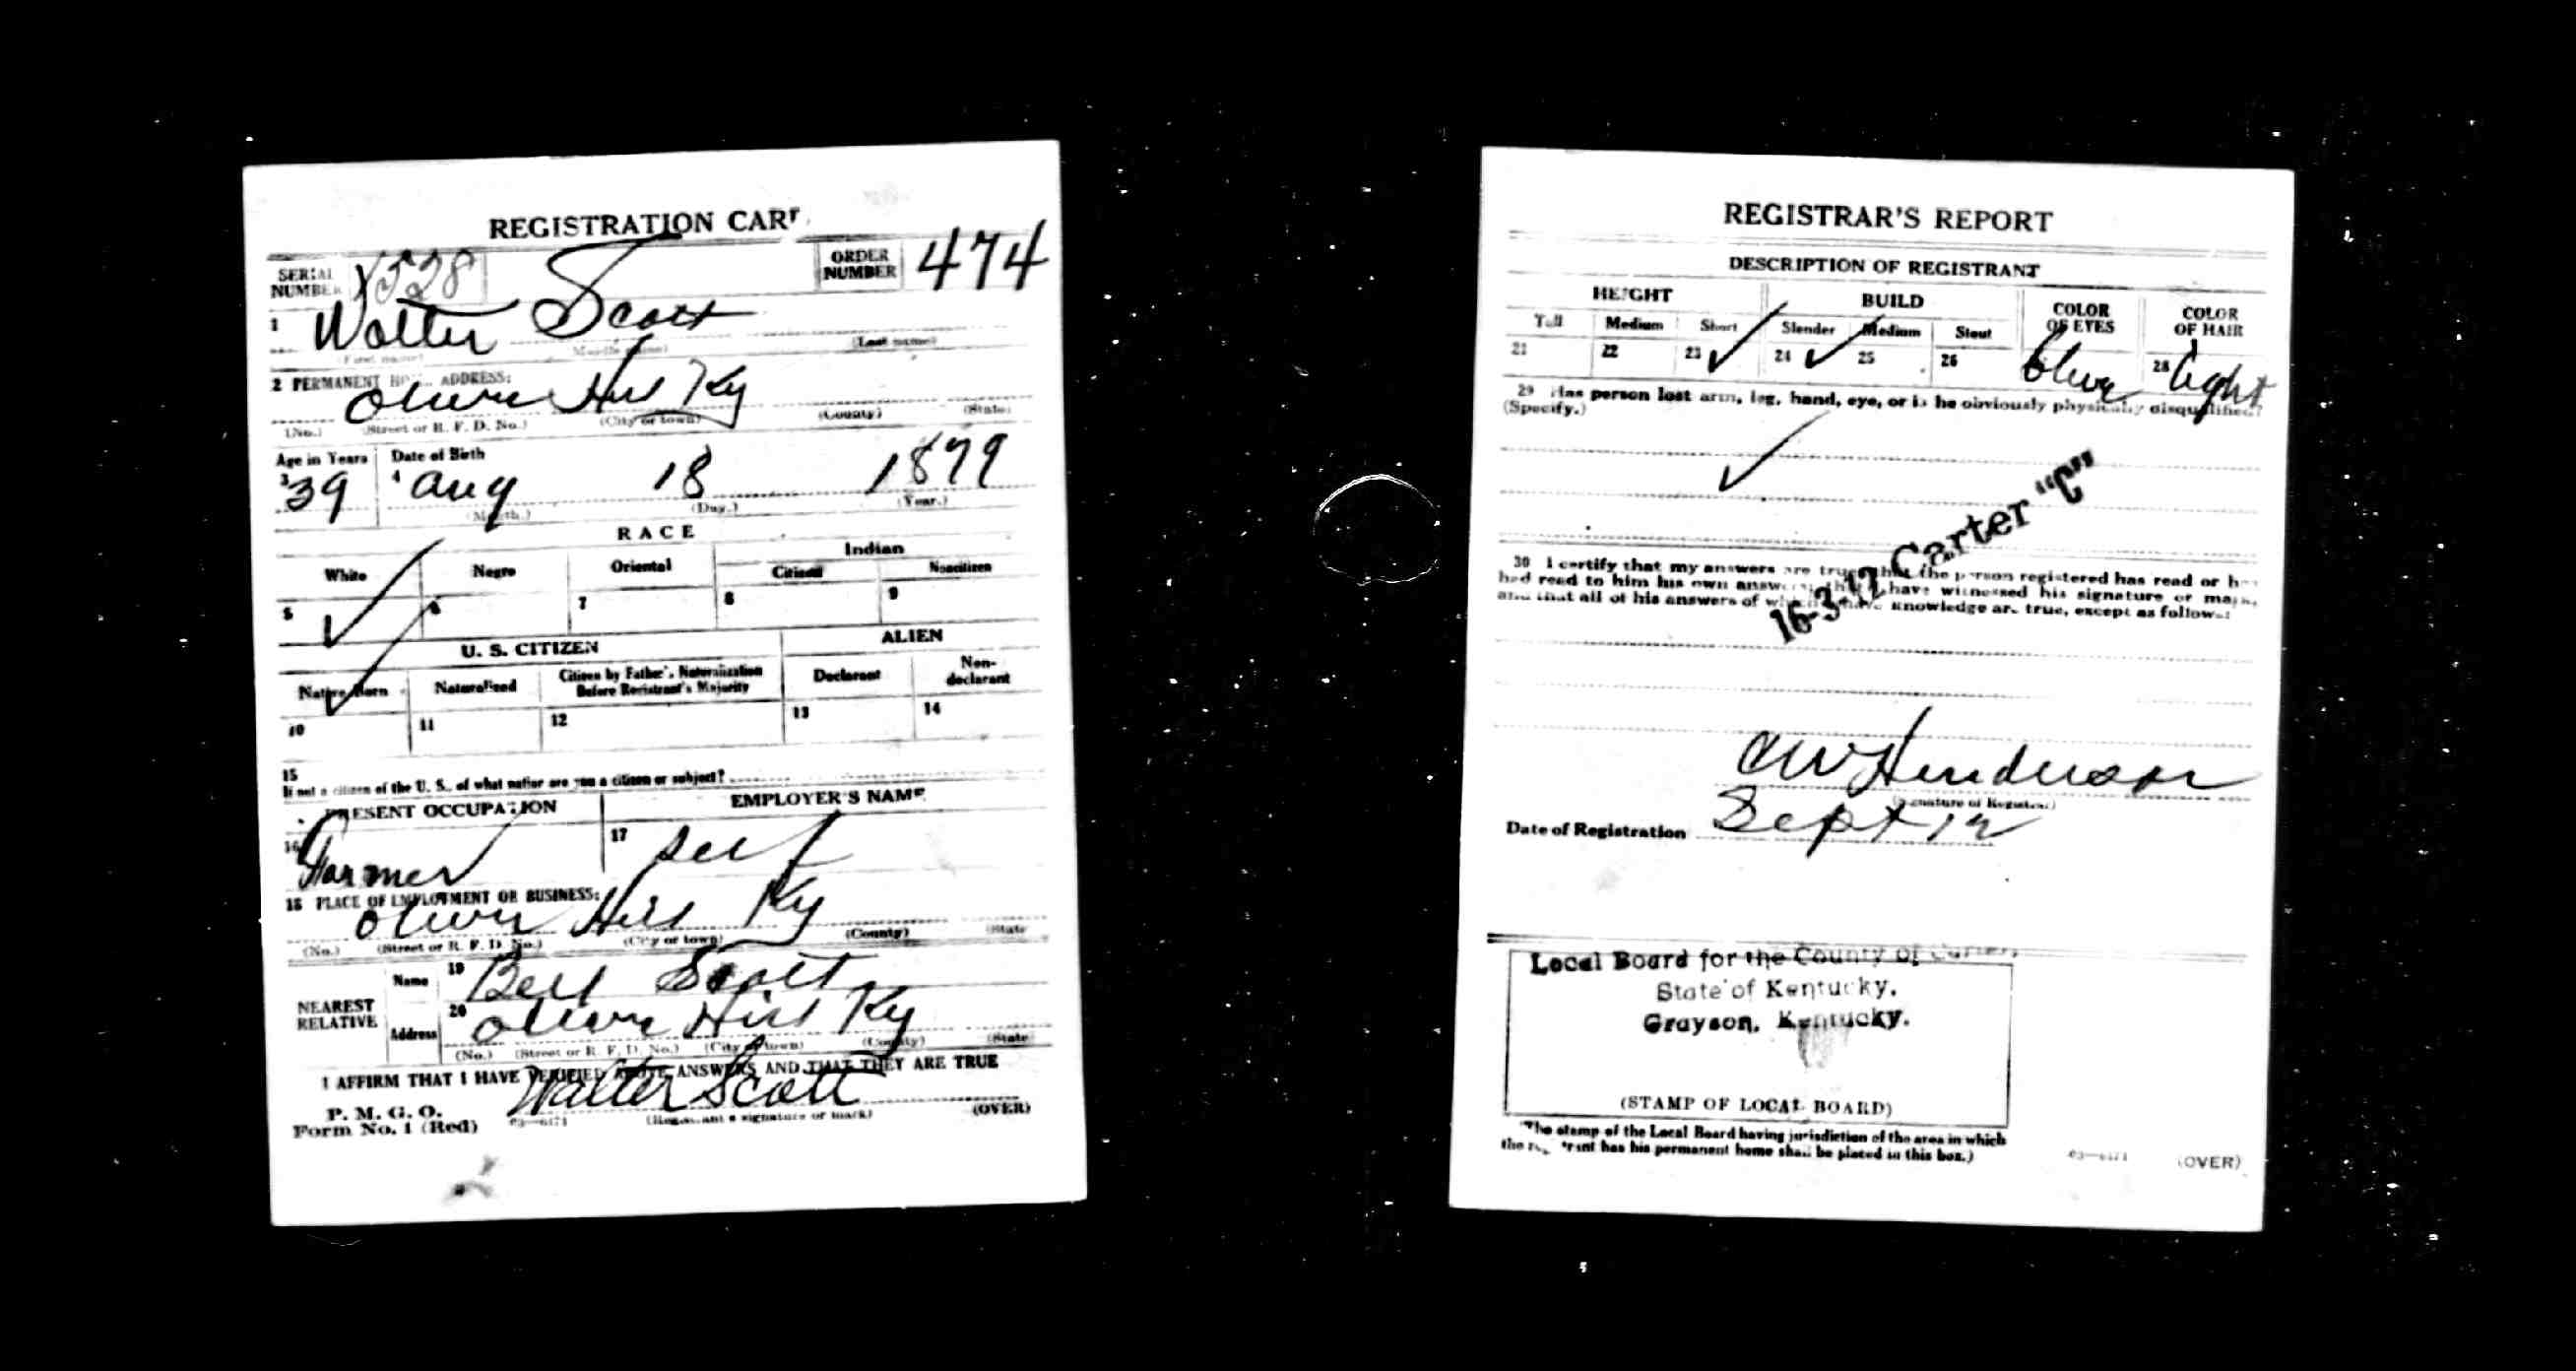 REGISTRATION CARD
SERIAL NUMBER 1528 ORDER NUMBER 474
1 Walter Scott
(First name) (Middle name) (Last name)
2 PERMANENT HOME ADDRESS:
Olive Hill Ky
(No.) (Street or R. F. D. No.) (City or town) (County) (State)
Age in Years Date of Birth
3 39 4 Aug 18 1879
(Month.) (Day.) (Year.)
RACE
White Negro Oriental Indian
Citizen Noncitizen
5 ✓ 6 7 8 9
U. S. CITIZEN ALIEN
Native Born Naturalized Citizen by Father's Naturalization Before Registrant's Majority Declarant Non-declarant
10 ✓ 11 12 13 14
15
If not a citizen of the U. S., of what nation are you a citizen or subject?
PRESENT OCCUPATION EMPLOYER'S NAME
16 Farmer 17 self
18 PLACE OF EMPLOYMENT OR BUSINESS:
Olive Hill Ky
(No.) (Street or R. F. D. No.) (City or town) (County) (State)
NEAREST RELATIVE
Name 19 Bell Scott
Address 20 Olive Hill Ky
(No.) (Street or R. F. D. No.) (City or town) (County) (State)
I AFFIRM THAT I HAVE VERIFIED ABOVE ANSWERS AND THAT THEY ARE TRUE
P. M. G. O.
Form No. 1 (Red) 03—6171 Walter Scott
(Registrant's signature or mark) (OVER)
REGISTRAR'S REPORT
DESCRIPTION OF REGISTRANT
HEIGHT BUILD COLOR OF EYES COLOR OF HAIR
Tall Medium Short Slender Medium Stout
21 22 23 ✓ 24 ✓ 25 26 Blue 28 light
29 Has person lost arm, leg, hand, eye, or is he obviously physically disqualified?
(Specify.)
✓
16-3-12 Carter "C"
30 I certify that my answers are true; that the person registered has read or has
had read to him his own answers; that I have witnessed his signature or mark,
and that all of his answers of which I have knowledge are true, except as follows:
CW Henderson
(Signature of Registrar)
Date of Registration Sept 12
Local Board for the County of Carter,
State of Kentucky.
Grayson, Kentucky.
(STAMP OF LOCAL BOARD)
(The stamp of the Local Board having jurisdiction of the area in which
the registrant has his permanent home shall be placed in this box.)
03—6171 (OVER)